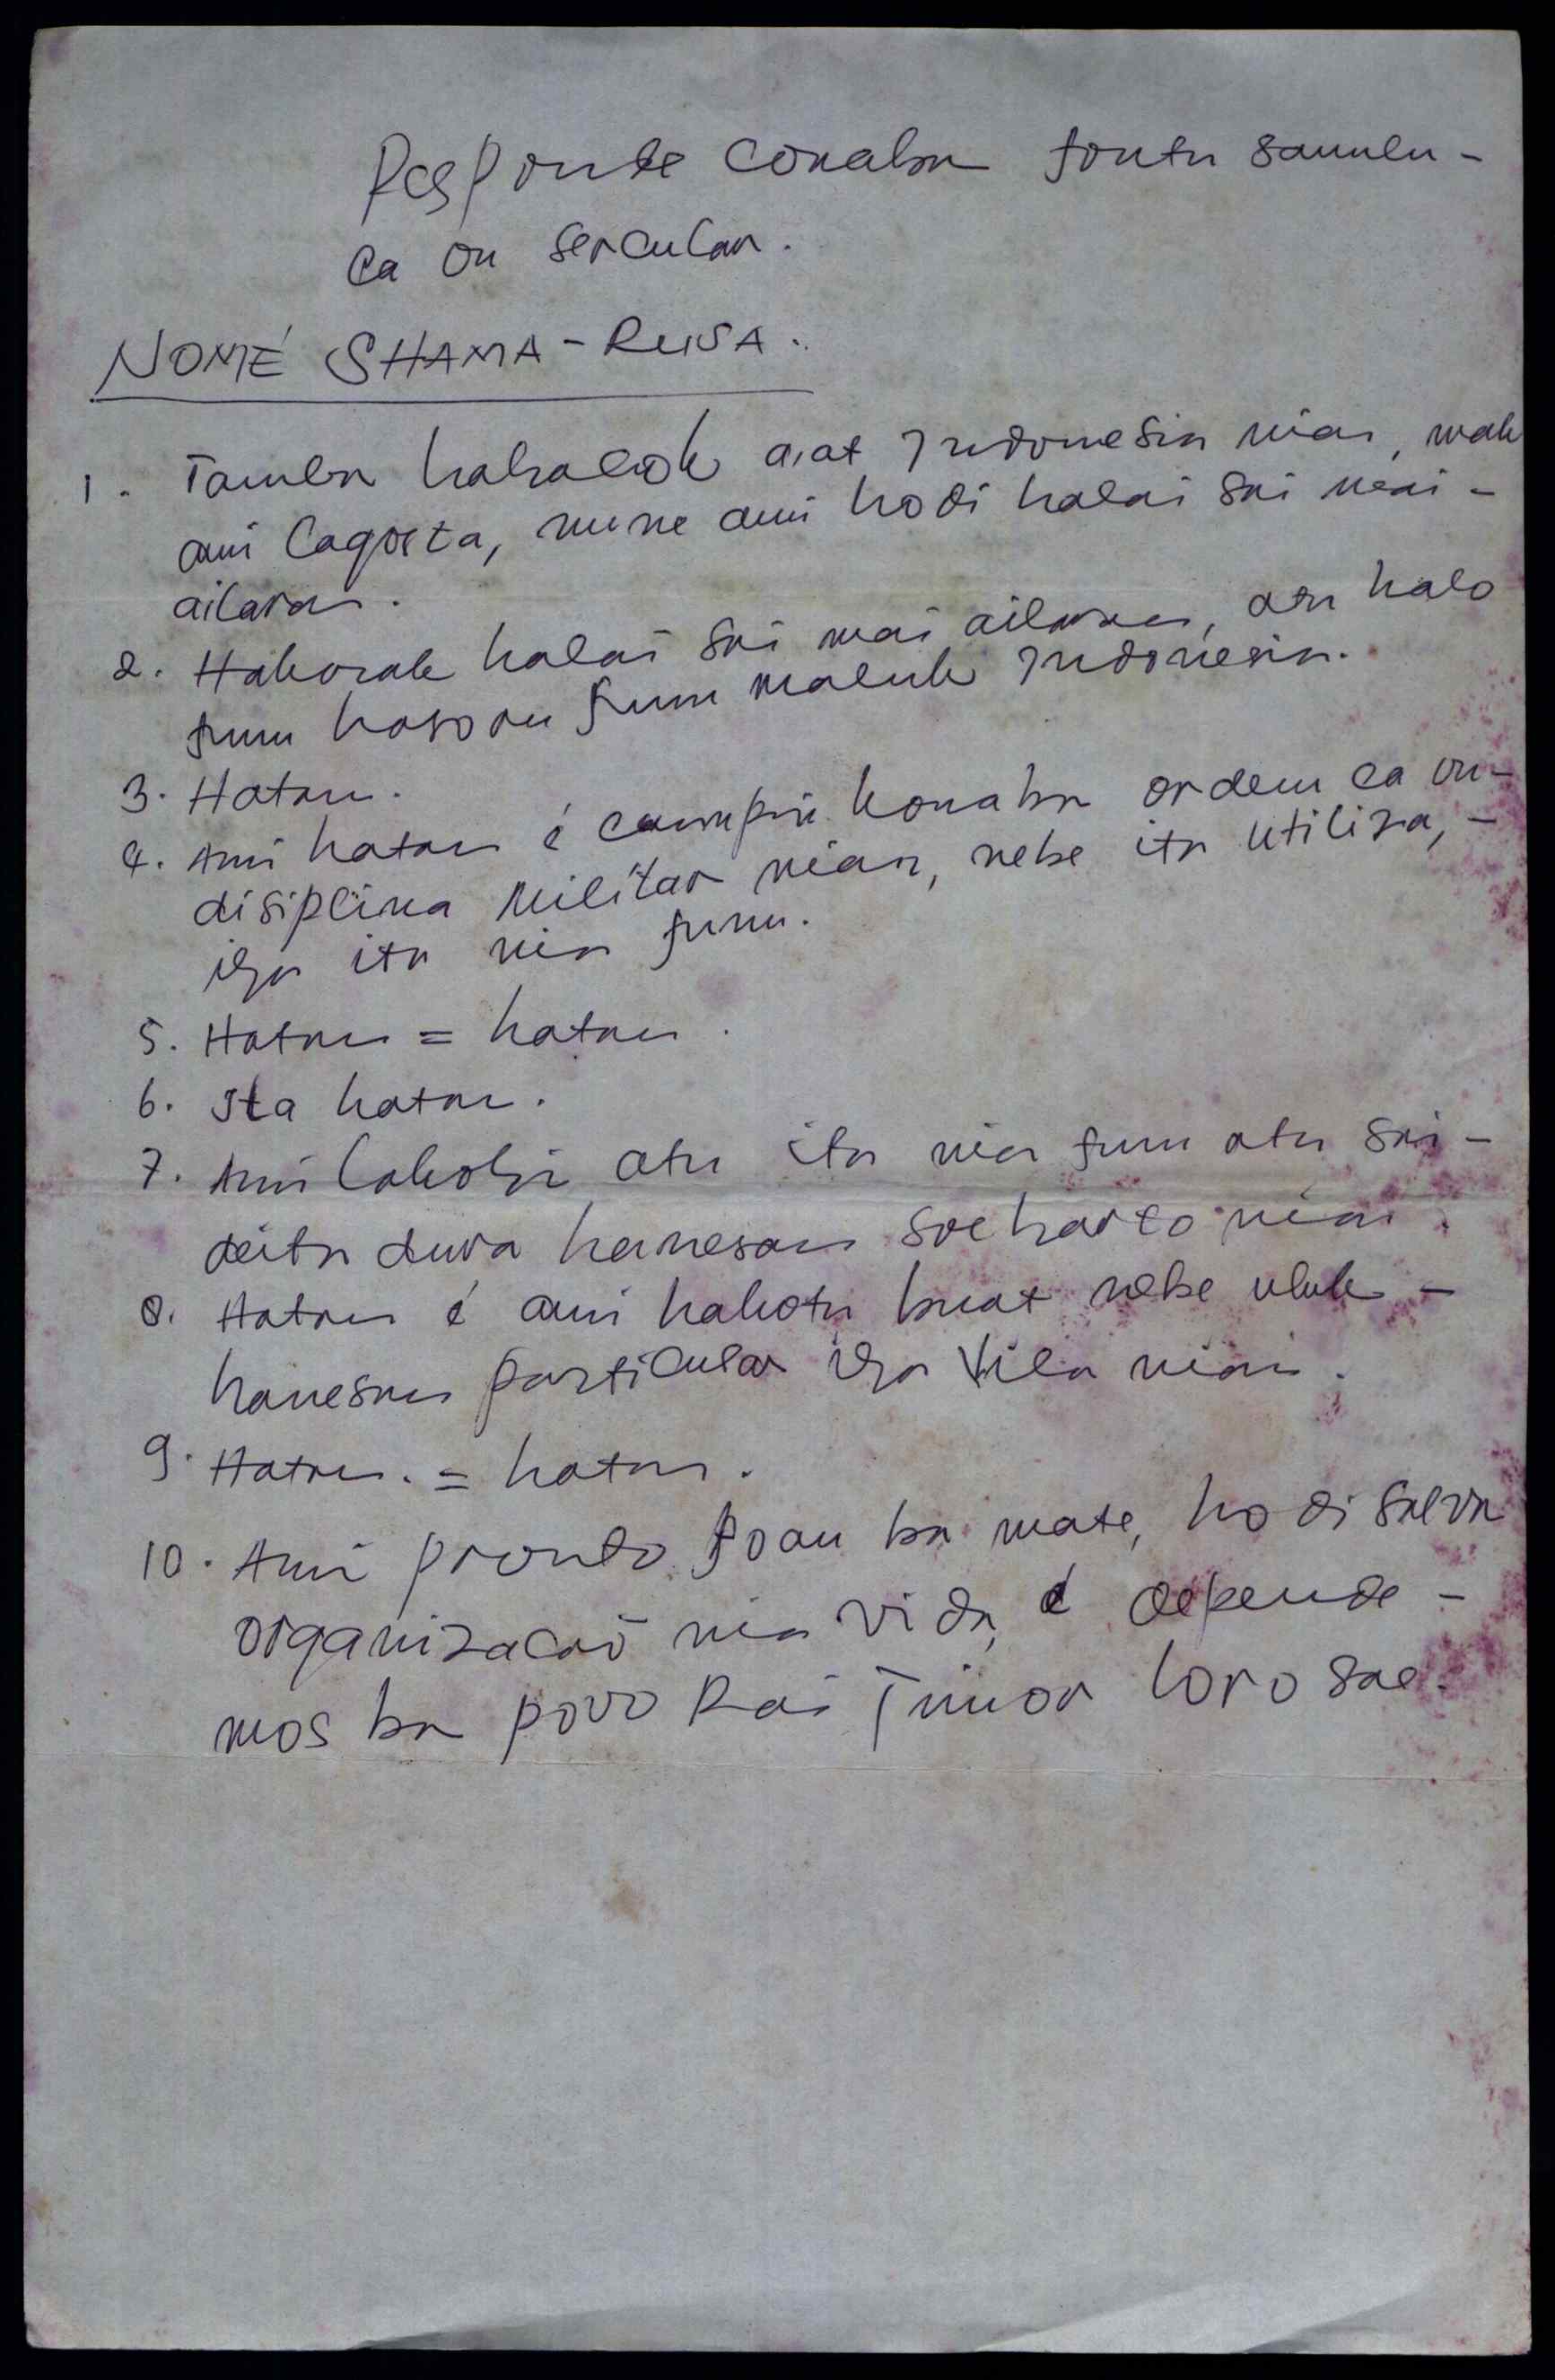 Responde conaba fontu sanulu -
ca ou sercular.
NOMÉ SHAMA-RUSA.
1. Tamba hahalok aat Indonesia nian, mak
ami lagosta, nune ami hodi halai sai mai -
ailaran.
2. Hakorak halai sai mai ailaran, atu halo
funu hasoru funu maluk Indonesia.
3. Hatan.
4. Ami hatan é cumpri konaba ordem ca ou -
disiplina militar nian, nebe ita utiliza, -
iha ita nia funu.
5. Hatan = hatan.
6. Sta hatan.
7. Ami lakohi atu ita nia funu atu sai -
deita dura hanesan soeharto nian.
8. Hatan é ami hahotu buat nebe uluk -
hanesan particular iha Vila nian.
9. Hatan. = hatan.
10. Ami pronto foan ba mate, hodi salva
organizacaõ nia vida, é depende -
mos ba povo Rai Timor loro sae.